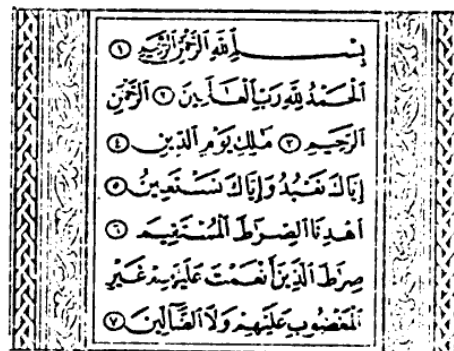 بِسْمِ اللَّهِ الرَّحْمَٰنِ الرَّحِيمِ ١
الْحَمْدُ لِلَّهِ رَبِّ الْعَالَمِينَ ٢ الرَّحْمَٰنِ
الرَّحِيمِ ٣ مَالِكِ يَوْمِ الدِّينِ ٤
إِيَّاكَ نَعْبُدُ وَإِيَّاكَ نَسْتَعِينُ ٥
اهْدِنَا الصِّرَاطَ الْمُسْتَقِيمَ ٦
صِرَاطَ الَّذِينَ أَنْعَمْتَ عَلَيْهِمْ غَيْرِ
الْمَغْضُوبِ عَلَيْهِمْ وَلَا الضَّالِّينَ ٧